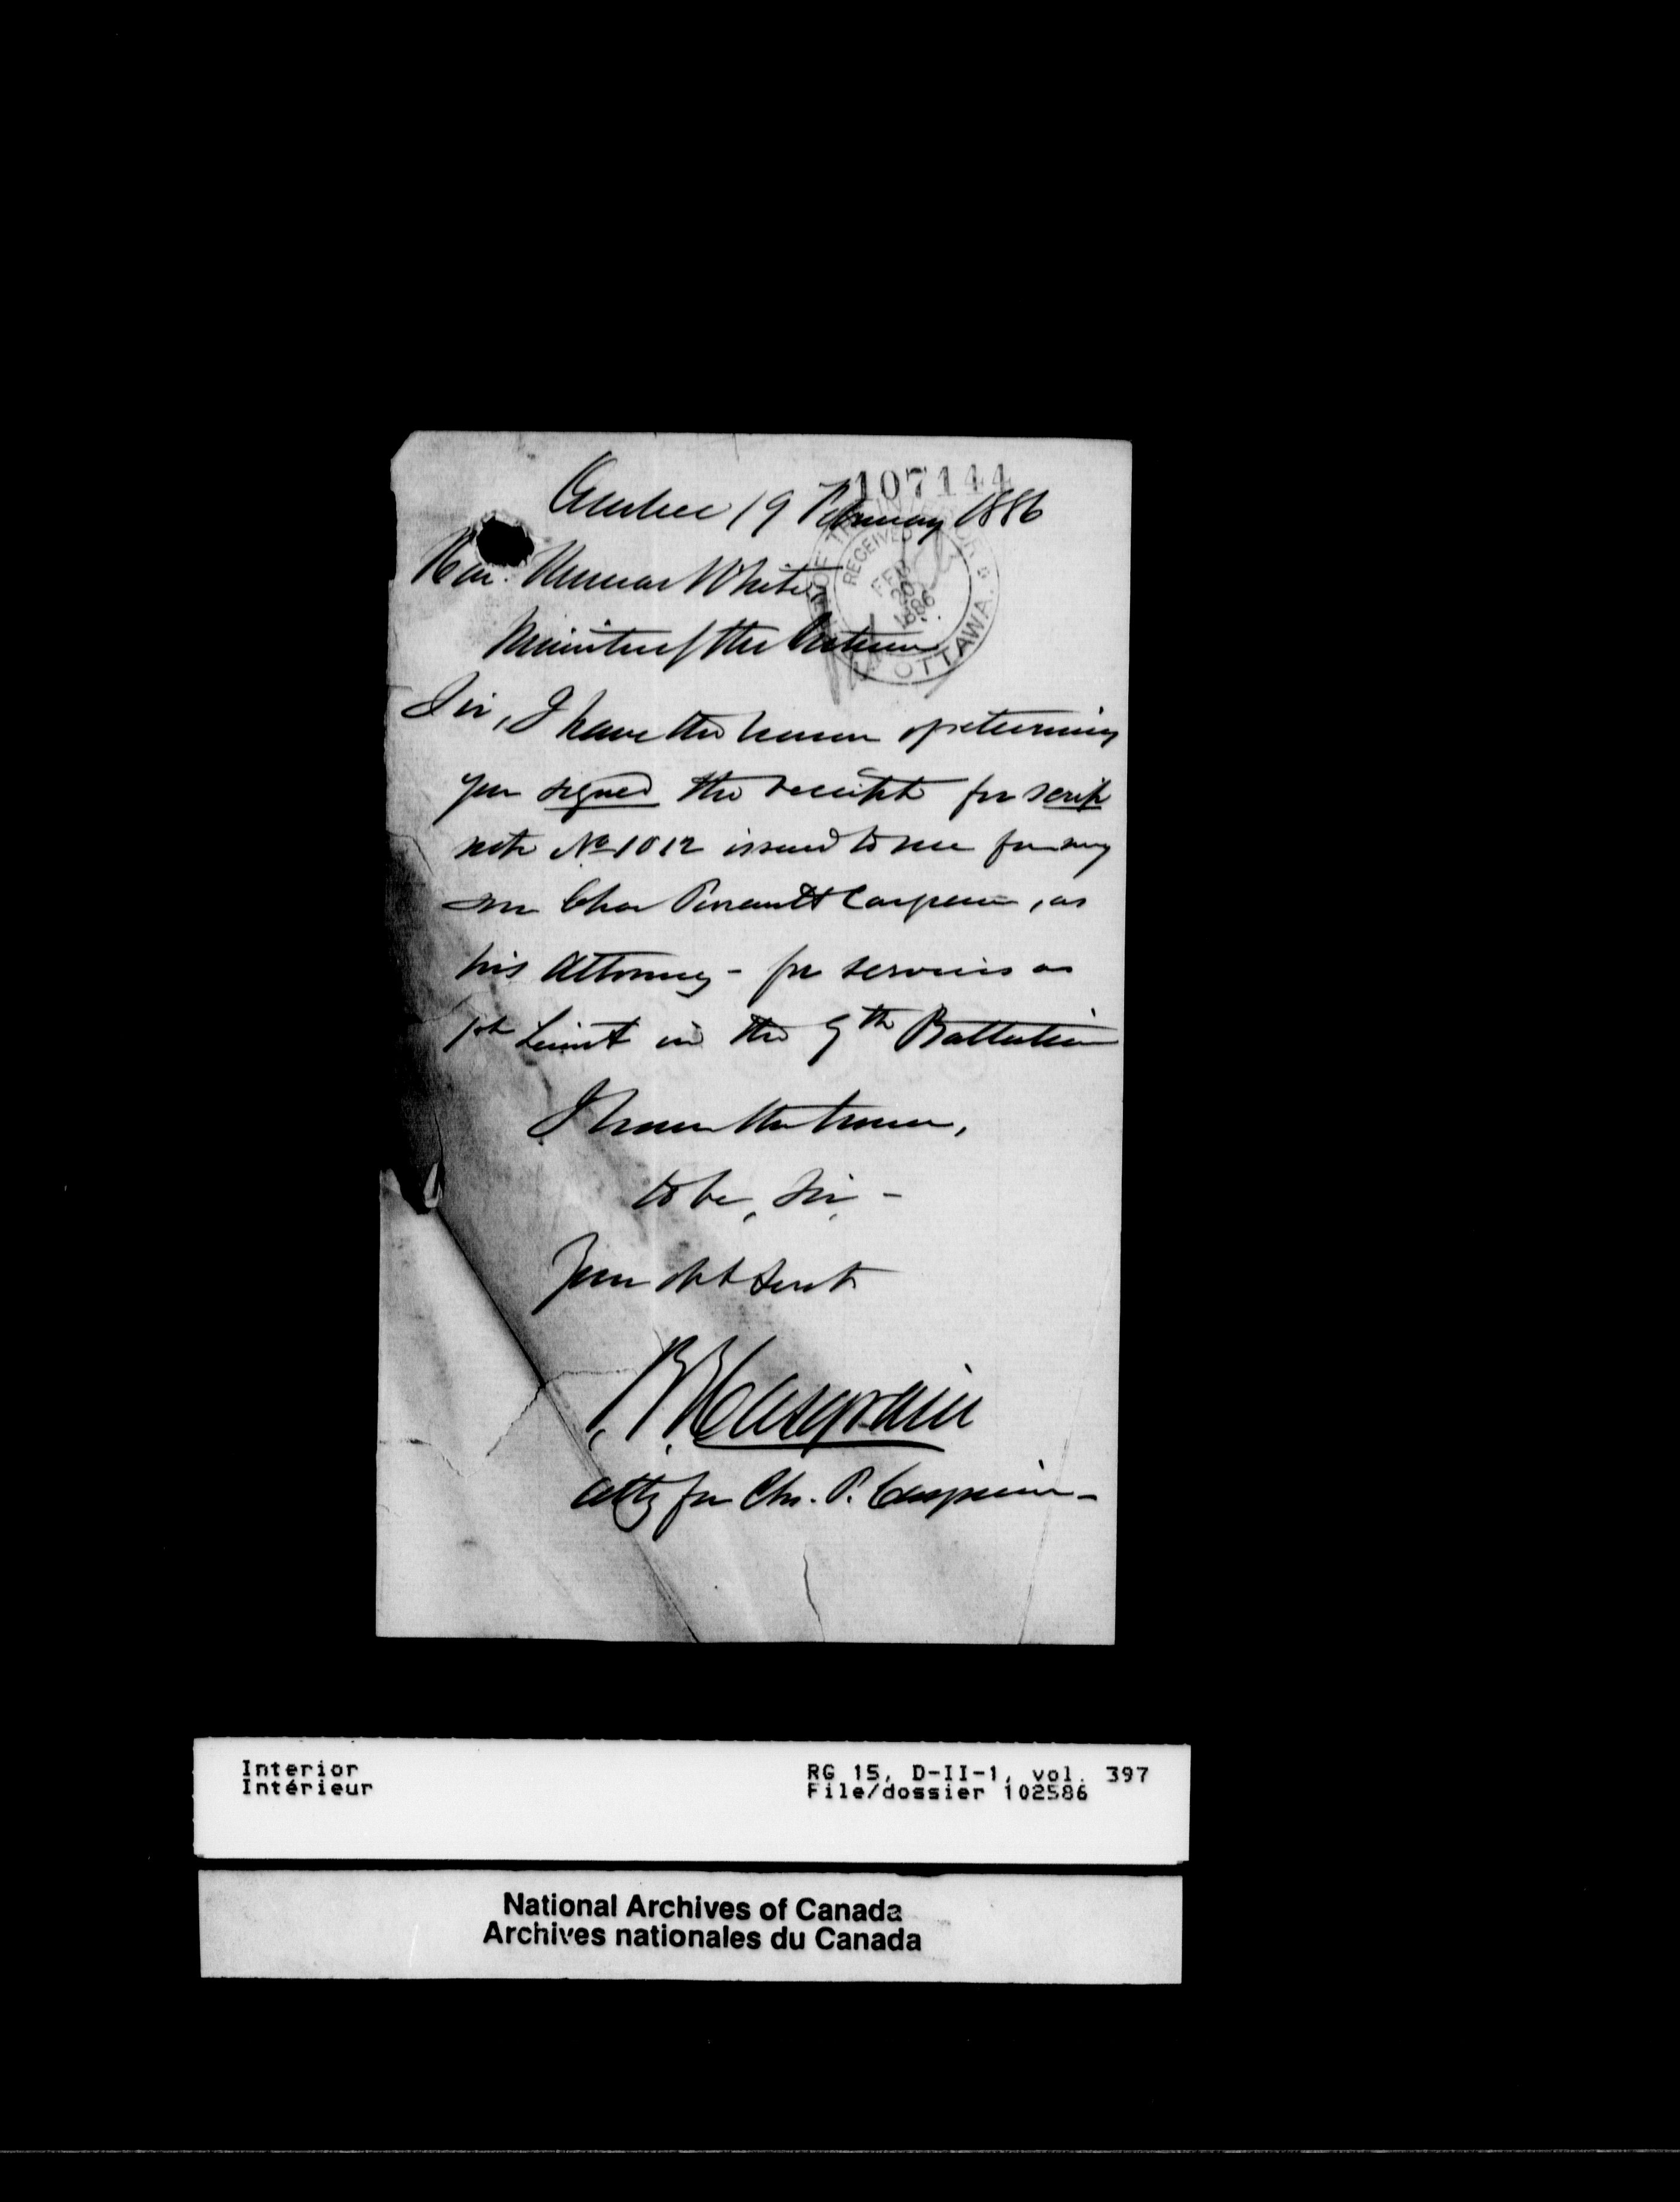 107144
Quebec 19 February 1886
Hon. Thomas White,
Minister of the Interior
RECEIVED
FEB 20 1886
OTTAWA.
Sir, I have the honor of returning
you signed the receipt for scrip
note No 1012 issued to me for my
son Chas Perrault Casgrain, as
his Attorney - for services as
1st Lieut in the 9th Battalion
I have the honor,
to be, Sir, -
Your obt Servt
P. B. Casgrain
Atty for Chs. P. Casgrain -
Interior
Intérieur
RG 15, D-II-1, vol. 397
File/dossier 102586
National Archives of Canada
Archives nationales du Canada